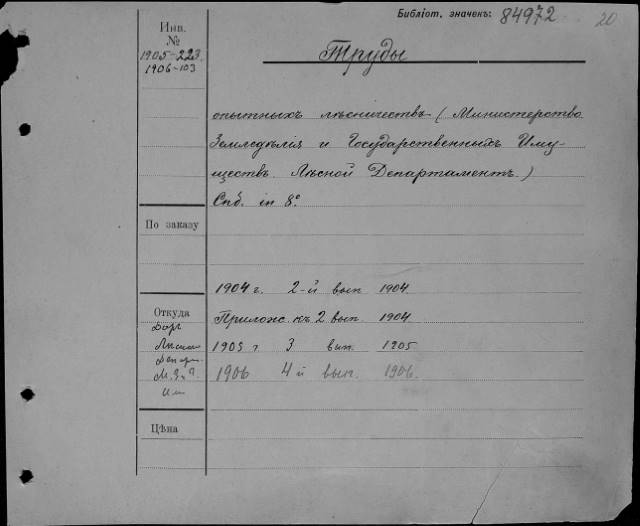 Библіот. значекъ: 84972 20
Инв.
№
1905-223
1906-103
Труды
опытныхъ лѣсничествъ (Министерство
Земледѣлія и Государственныхъ Иму-
ществъ. Лѣсной Департаментъ.)
Спб. in 8°.
По заказу
1904 г. 2-й вып 1904.
Откуда
Прилож. къ 2 вып. 1904
1905 г 3 вып. 1905
Депар.
1906 4й вып. 1906.
М. З. и Г.
Им
Цѣна